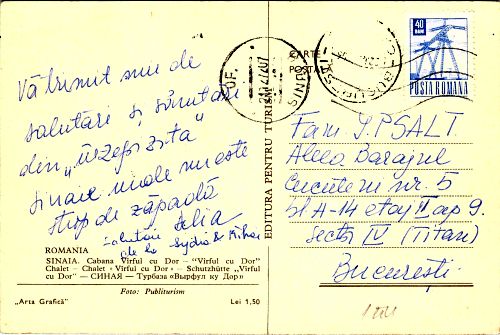 Vă trimit mii de
salutări și sănătate
din
Sinaia unde nu este
strop de zăpadă
Delia
salutări
de la Lydia & Mihai
ROMANIA
SINAIA. Cabana Vîrful cu Dor — "Virful cu Dor"
Chalet — Chalet « Vîrful cu Dor » — Schutzhütte „Vîrful
cu Dor" — СИНАЯ — Турбаза «Вырфул ку Дор»
Foto: Publiturism
„Arta Grafică"
Lei 1,50
EDITURA PENTRU TURISM
CARTE
POSTALĂ
BUCUREȘTI
40
BANI
POȘTA ROMANA
Fam. I. PSALT
Aleea Barajul
Cucuteni nr. 5
bl A-14 etaj II ap 9.
Sect. IV (Titan)
București